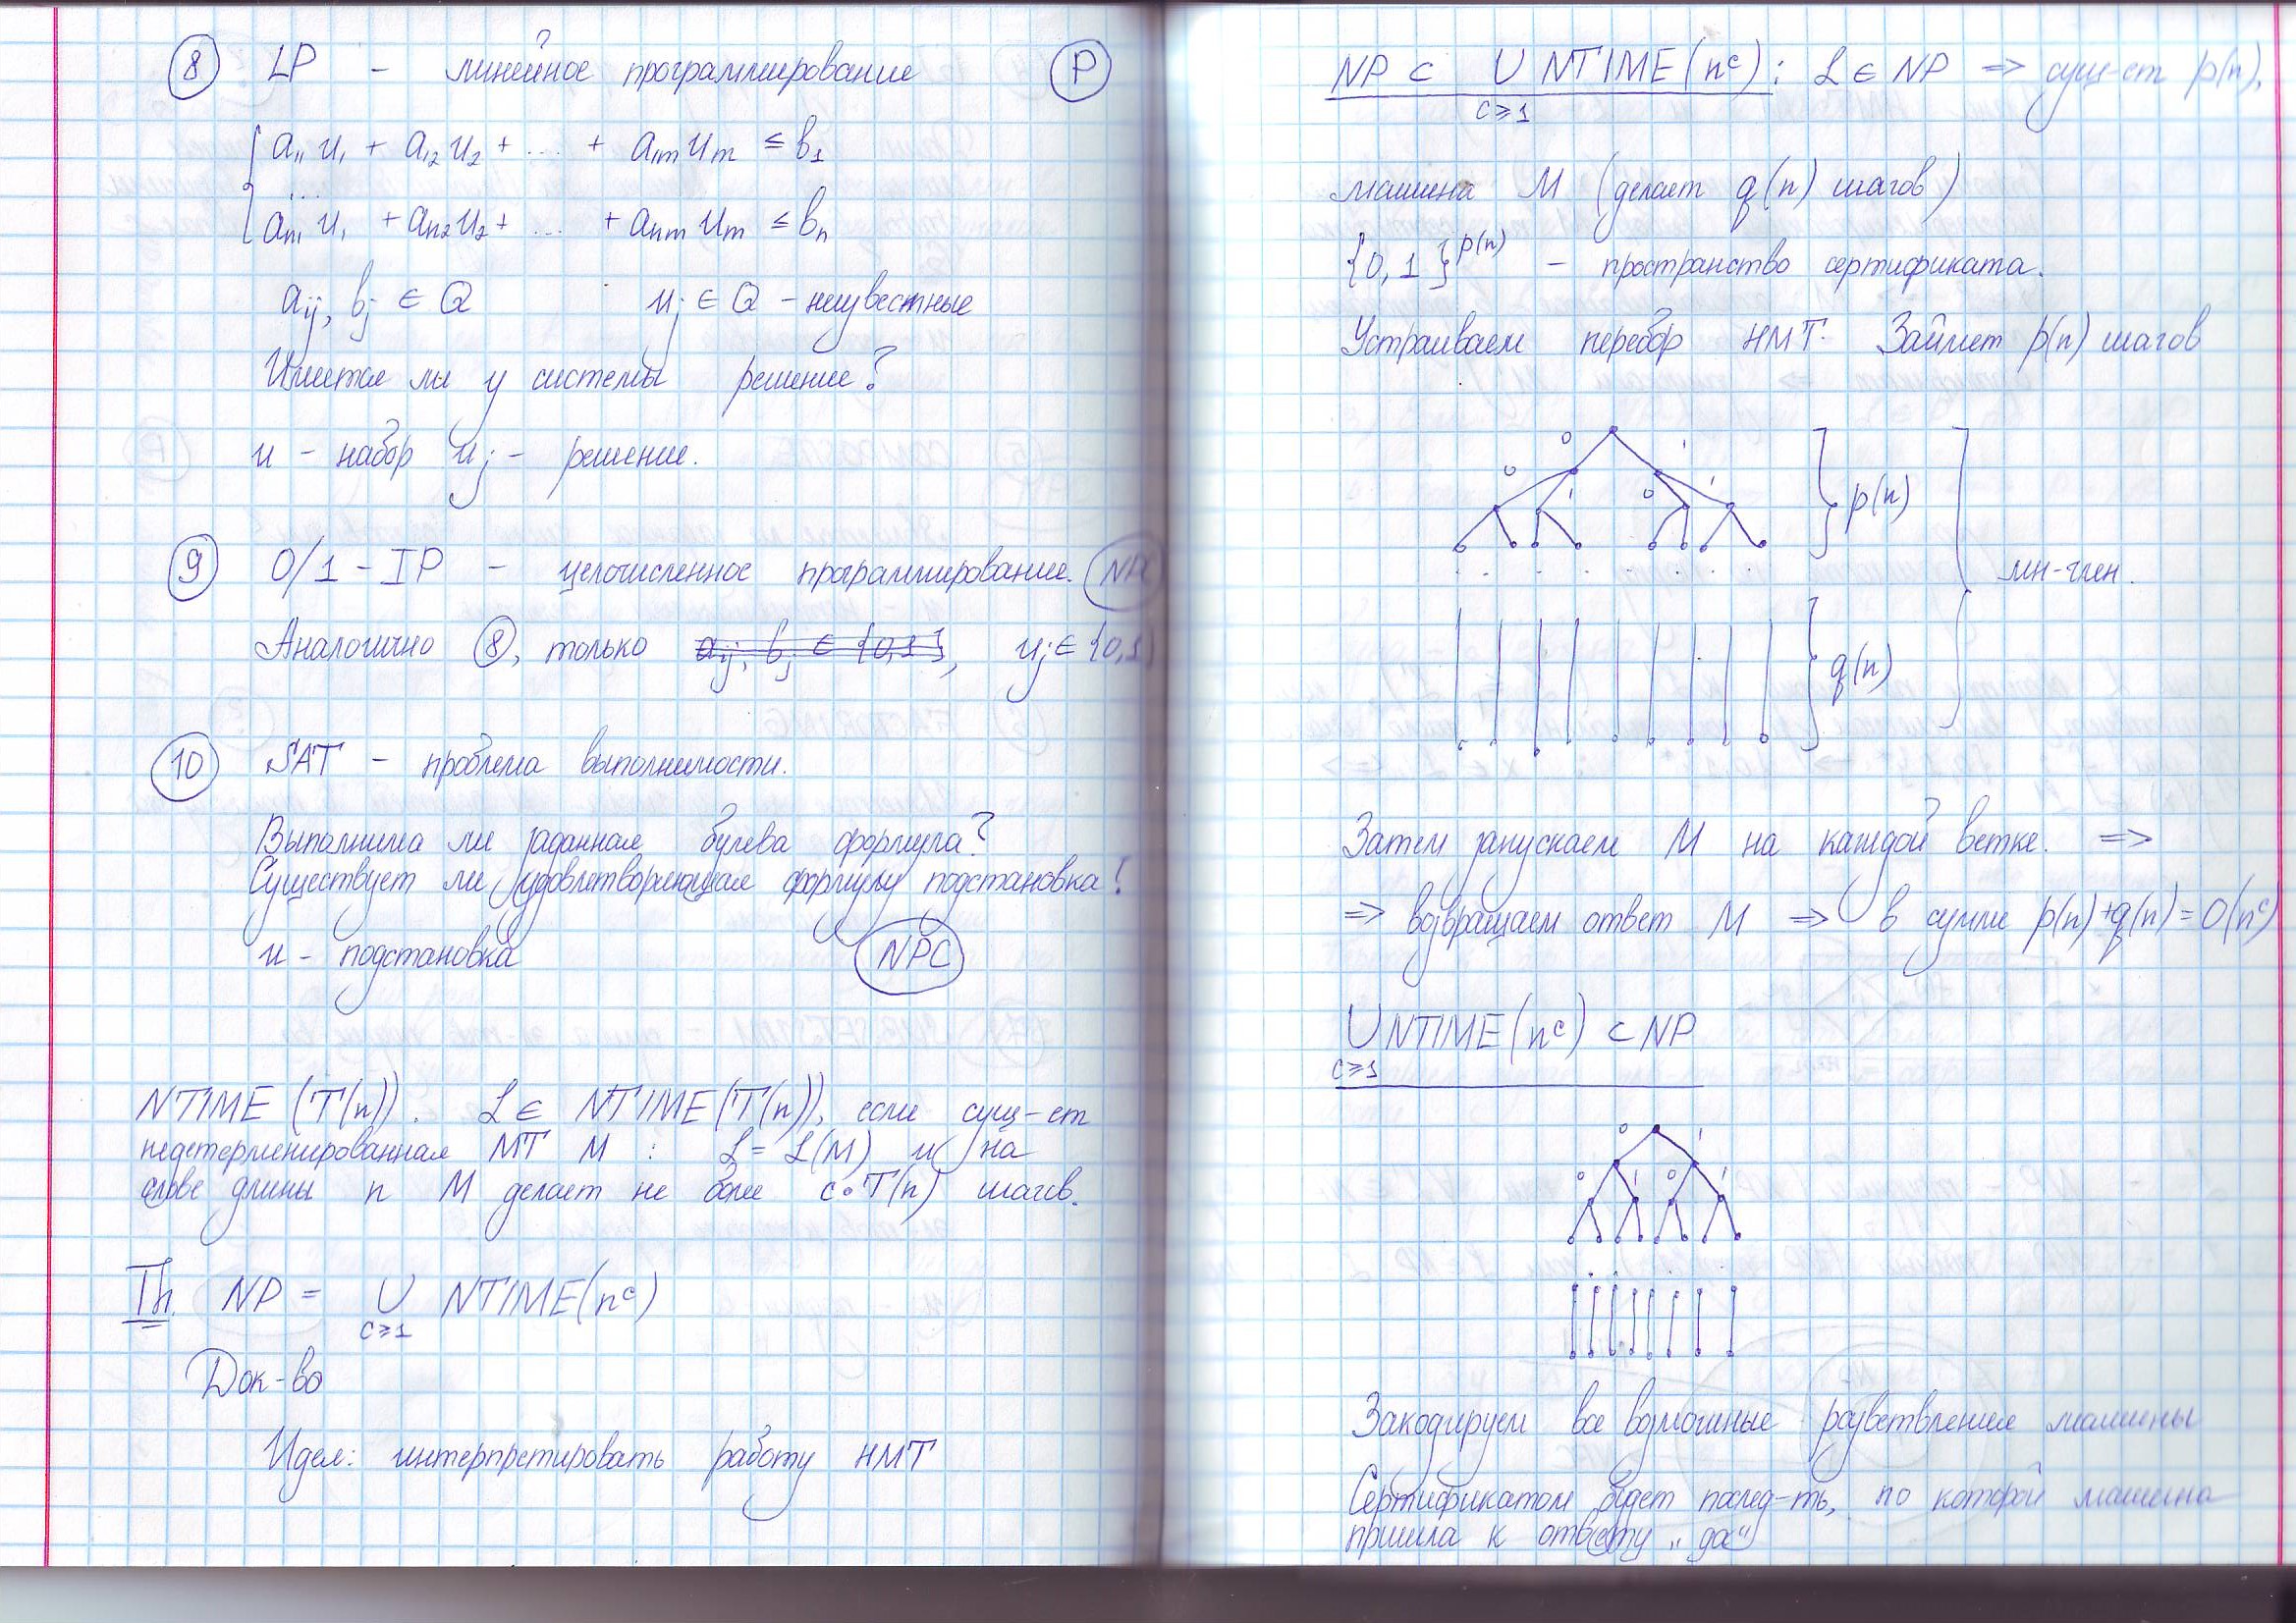 ⑧ LP – линейное программирование (P)
a₁₁u₁ + a₁₂u₂ + ... + a₁ₘuₘ ≤ b₁
...
aₙ₁u₁ + aₙ₂u₂ + ... + aₙₘuₘ ≤ bₙ
aᵢⱼ, bⱼ ∈ Q uⱼ ∈ Q – неизвестные
Имеется ли у системы решение?
u – набор uⱼ – решение.
⑨ 0/1 – IP – целочисленное программирование. (NPC)
Аналогично ⑧, только aᵢⱼ, bⱼ ∈ {0,1}, uⱼ ∈ {0,1}
⑩ SAT – проблема выполнимости.
Выполнима ли заданная булева формула?
Существует ли удовлетворяющая формулу подстановка?
u – подстановка (NPC)
NTIME (T(n)). L ∈ NTIME(T(n)), если сущ-ет
недетерминированная МТ M : L = L(M) и на
слове длины n M делает не более c·T(n) шагов.
Th. NP = ∪ NTIME(nᶜ)
c≥1
Док-во
Идея: интерпретировать работу НМТ
NP ⊂ ∪ NTIME(nᶜ) : L ∈ NP ⇒ сущ-ет p(n),
c≥1
машина M (делает q(n) шагов)
{0,1}ᵖ⁽ⁿ⁾ – пространство сертификата.
Устраиваем перебор НМТ. Займет p(n) шагов
0 1
0 1 0 1
p(n)
мн-член.
q(n)
Затем запускаем M на каждой ветке. ⇒
⇒ возвращаем ответ M ⇒ в сумме p(n)+q(n) = O(nᶜ)
∪ NTIME(nᶜ) ⊂ NP
c≥1
0 1
0 1 0 1
Закодируем все возможные разветвления машины
Сертификатом будет послед-ть, по которой машина
пришла к ответу „да“